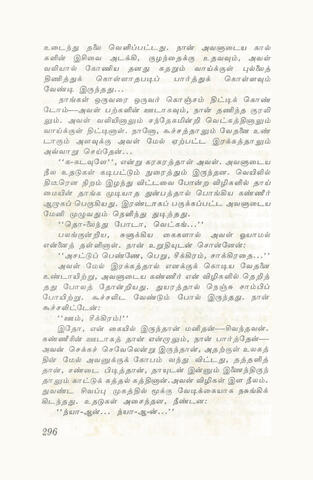 உடைந்து தலை வெளிப்பட்டது. நான் அவளுடைய கால்
களின் இசிவை அடக்கி, குழந்தைக்கு உதவவும், அவள்
வலியால் கோணிய தனது கதறும் வாய்க்குள் புல்லைத்
திணித்துக் கொள்ளாதபடிப் பார்த்துக் கொள்ளவும்
வேண்டி இருந்தது...
நாங்கள் ஒருவரை ஒருவர் கொஞ்சம் திட்டிக் கொண்
டோம்—அவள் பற்களின் ஊடாகவும், நான் தணிந்த குரலி
லும். அவள் வலியினாலும் சந்தேகமின்றி வெட்கத்தினாலும்
வாய்க்குள் திட்டினாள். நானோ, கூச்சத்தாலும் வேதனை உண்
டாகும் அளவுக்கு அவள் மேல் ஏற்பட்ட இரக்கத்தாலும்
அவ்வாறு செய்தேன்...
‘‘க-கடவுளே’’, என்று கரகரத்தாள் அவள். அவளுடைய
நீல உதடுகள் கடிபட்டும் நுரைத்தும் இருந்தன. வெயிலில்
திடீரென நிறம் இழந்து விட்டவை போன்ற விழிகளில் தாய்
மையின் தாங்க முடியாத துன்பத்தால் பொங்கிய கண்ணீர்
ஆழுகப் பெருகியது. இரண்டாகப் பகுக்கப்பட்ட அவளுடைய
மேனி முழுவதும் தெளிந்து துடித்தது.
‘‘தொ-லைந்து போடா, வெட்கங்...’’
பலங்குன்றிய, சுளுக்கிய கைகளால் அவள் ஓயாமல்
என்னைத் தள்ளினாள். நான் உறுதியுடன் சொன்னேன்:
‘‘அசட்டுப் பெண்ணே, பெறு, சீக்கிரம், சாக்கிரதை...’’
அவள் மேல் இரக்கத்தால் எனக்குக் கொடிய வேதனை
உண்டாயிற்று, அவளுடைய கண்ணீர் என் விழிகளில் தெறித்
தது போலத் தோன்றியது. துயரத்தால் நெஞ்சு சாம்பிப்
போயிற்று. கூச்சலிட வேண்டும் போல் இருந்தது. நான்
கூச்சலிட்டேன்:
‘‘ஊம், சீக்கிரம்!’’
இதோ, என் கையில் இருந்தான் மனிதன்—சிவந்தவன்.
கண்ணீரின் ஊடாகத் தான் என்றாலும், நான் பார்த்தேன்—
அவன் செக்கச் செவேலென்று இருந்தான், அதற்குள் உலகத்
தின் மேல் அவனுக்குக் கோபம் வந்து விட்டது, தத்தளித்
தான், சண்டை பிடித்தான், தாயுடன் இன்னும் இணைந்திருந்
தாலும் காட்டுக் கத்தல் கத்தினான். அவன் விழிகள் இள நீலம்.
துவண்ட சிவப்பு முகத்தில் மூக்கு வேடிக்கையாக நசுங்கிக்
கிடந்தது. உதடுகள் அசைந்தன, நீண்டன:
‘‘ந்யா-ஆன்... ந்யா-ஆ-ன்...’’
296